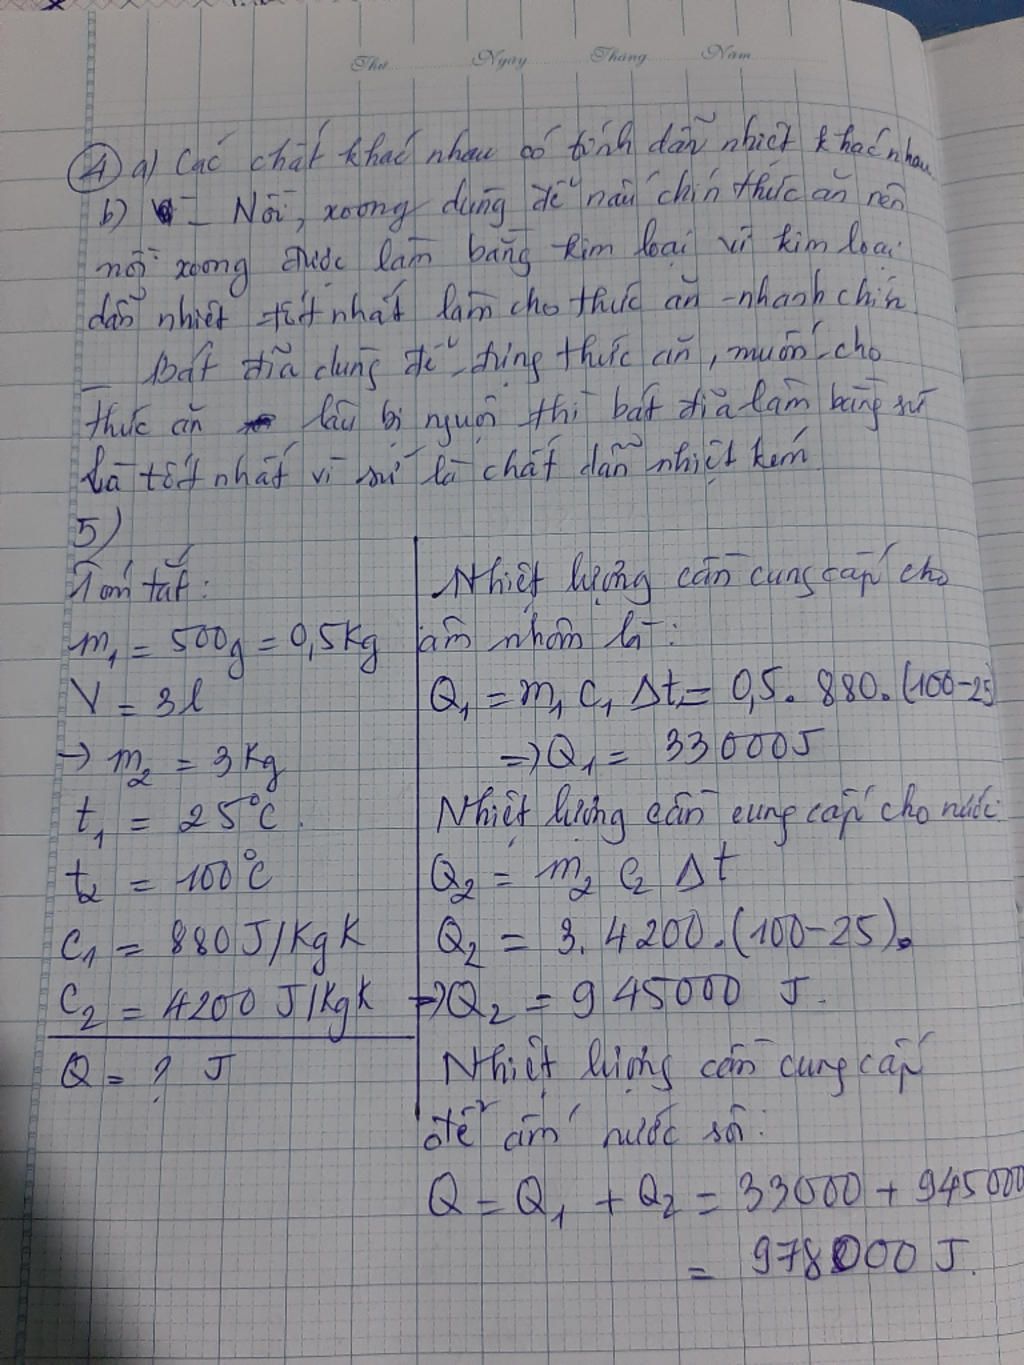 Thứ Ngày Tháng Năm
4 a) Các chất khác nhau có tính dẫn nhiệt khác nhau
b) - Nồi, xoong dùng để nấu chín thức ăn nên
nồi xoong được làm bằng kim loại vì kim loại
dẫn nhiệt tốt nhất làm cho thức ăn nhanh chín
- Bát đĩa dùng để đựng thức ăn, muốn cho
thức ăn lâu bị nguội thì bát đĩa làm bằng sứ
là tốt nhất vì sứ là chất dẫn nhiệt kém
5)
Tóm tắt:
m₁ = 500g = 0,5Kg
V = 3l
→ m₂ = 3Kg
t₁ = 25°C.
t₂ = 100°C
C₁ = 880J/KgK
C₂ = 4200 J/KgK
Q = ? J
Nhiệt lượng cần cung cấp cho
ấm nhôm là:
Q₁ = m₁ C₁ Δt = 0,5. 880. (100-25)
=> Q₁ = 33000J
Nhiệt lượng cần cung cấp cho nước
Q₂ = m₂ C₂ Δt
Q₂ = 3. 4200. (100-25).
=> Q₂ = 945000 J.
Nhiệt lượng cần cung cấp
để ấm nước sôi:
Q = Q₁ + Q₂ = 33000 + 945000
= 978000 J.